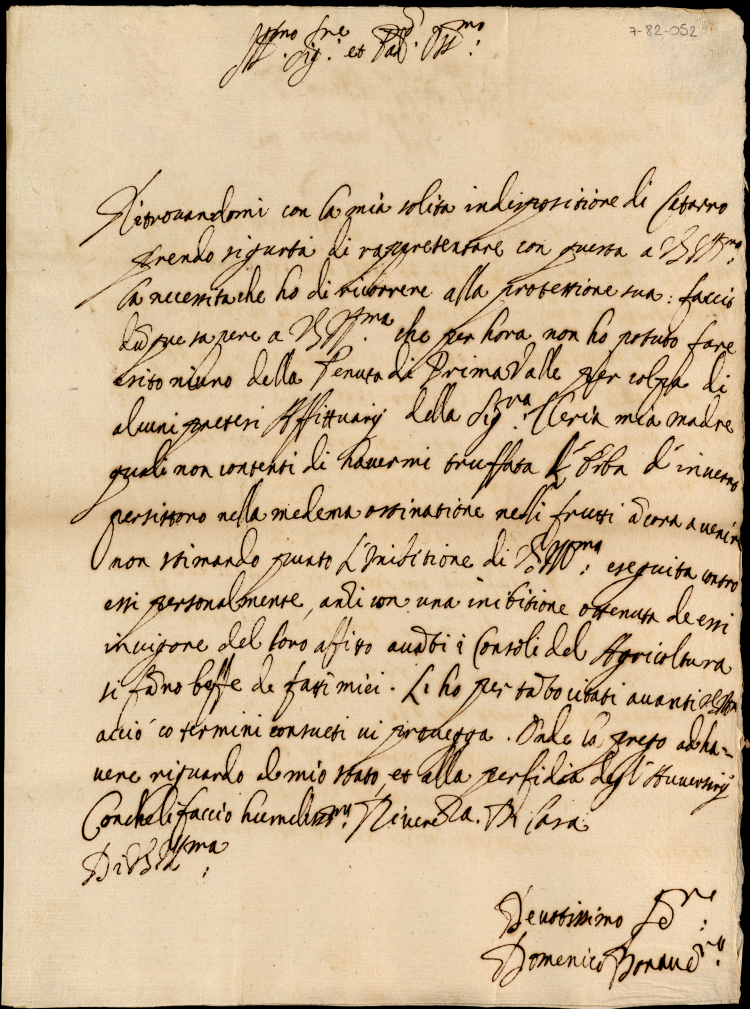 7-82-052
Ill.mo Sig.re et Pad.
Ritrovandomi con la mia solita indispositione di Catarro
prendo sigurtà di rappresentare con questa a V.S. Ill.ma
la necessità che ho di ricorrere alla protettione sua: faccio
dūque sapere a V.S. Ill.ma che per hora non ho potuto fare
esito niuno della Tenuta di Prima Valle per colpa di
alcuni preteri Affittuarij della Sig.ra Cleria mia madre
quali non contenti di havermi truffata L'Erba d'inverno
persistono nella medema ostinatione nelli frutti ācora avenire
non stimando punto L'Inibitione di V.S. Ill.ma: eseguita contro
essi personalmente, anzi con una inibitione ottenuta de essi
in vigore del loro affitto avāti i Consoli del Agricoltura
si fāno beffe de fatti miei. Li ho per tāto citati avanti V.S. Ill.ma
acciò co termini consueti vi provegga. Onde la prego ad ha=
vere riguardo al mio stato, et alla perfidia degl'Aversarij
Con che li faccio humiliss.ma River.za. Di Casa
Di V.S. Ill.ma:
Devotissimo Se.re:
Domenico